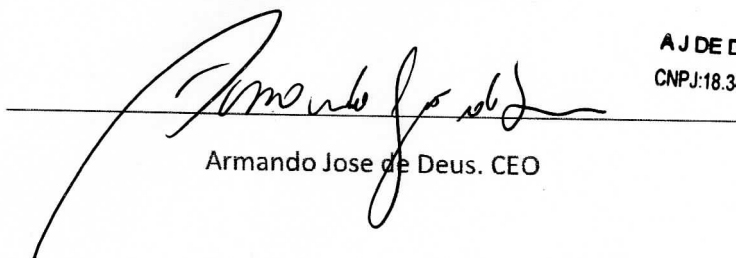 A J DE D
CNPJ:18.3
Armando Jose de
Armando Jose de Deus. CEO